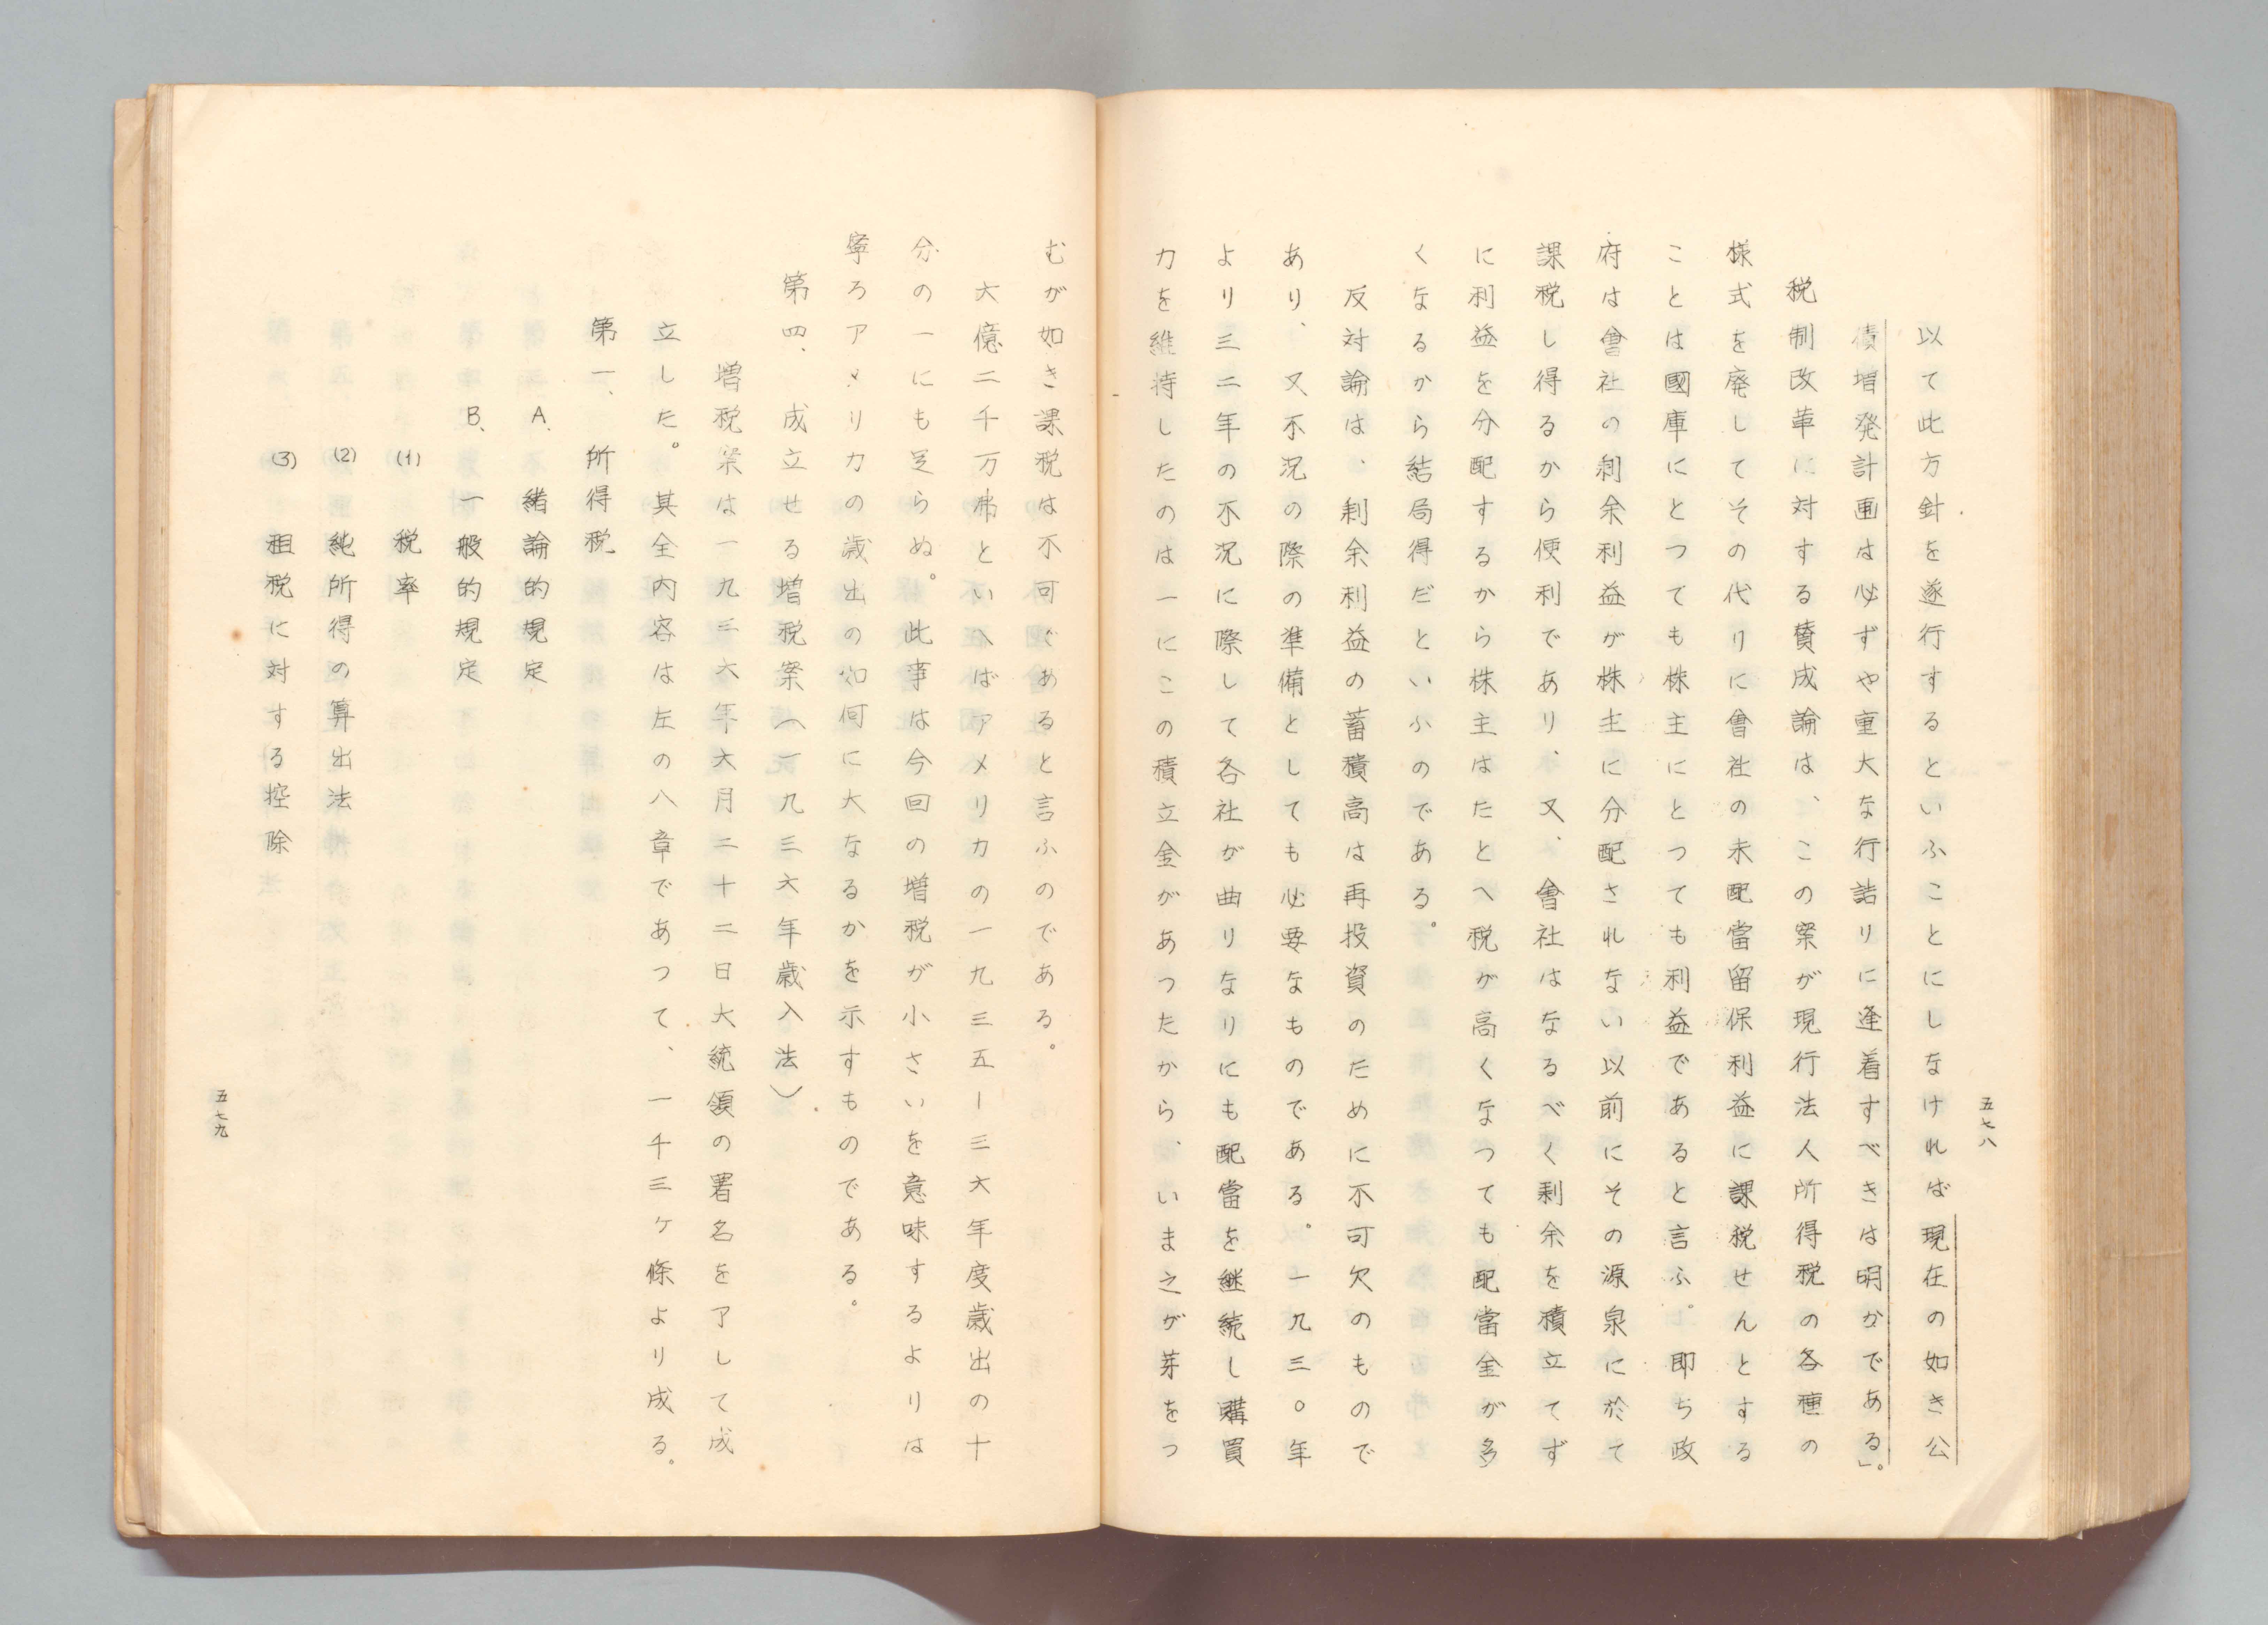 五七八
以て此方針を遂行するといふことにしなければ現在の如き公
債増発計画は必ずや重大な行詰りに逢着すべきは明かである」。
税制改革に対する賛成論は、この案が現行法人所得税の各種の
様式を廃してその代りに會社の未配當留保利益に課税せんとする
ことは國庫にとつても株主にとつても利益であると言ふ。即ち政
府は會社の剰余利益が株主に分配されない以前にその源泉に於て
課税し得るから便利であり、又、會社はなるべく剰余を積立てず
に利益を分配するから株主はたとへ税が高くなつても配當金が多
くなるから結局得だといふのである。
反対論は、剰余利益の蓄積高は再投資のために不可欠のもので
あり、又不況の際の準備としても必要なものである。一九三〇年
より三二年の不況に際して各社が曲りなりにも配當を継続し購買
力を維持したのは一にこの積立金があつたから、いま之が芽をつ
むが如き課税は不可であると言ふのである。
六億二千万弗といへばアメリカの一九三五ー三六年度歳出の十
分の一にも足らぬ。此事は今回の増税が小さいを意味するよりは
寧ろアメリカの歳出の如何に大なるかを示すものである。
第四、成立せる増税案(一九三六年歳入法)
増税案は一九三六年六月二十二日大統領の署名を了して成
立した。其全内容は左の八章であつて、一千三ヶ條より成る。
第一、所得税
A、緒論的規定
B、一般的規定
(1) 税率
(2) 純所得の算出法
(3) 租税に対する控除
五七九